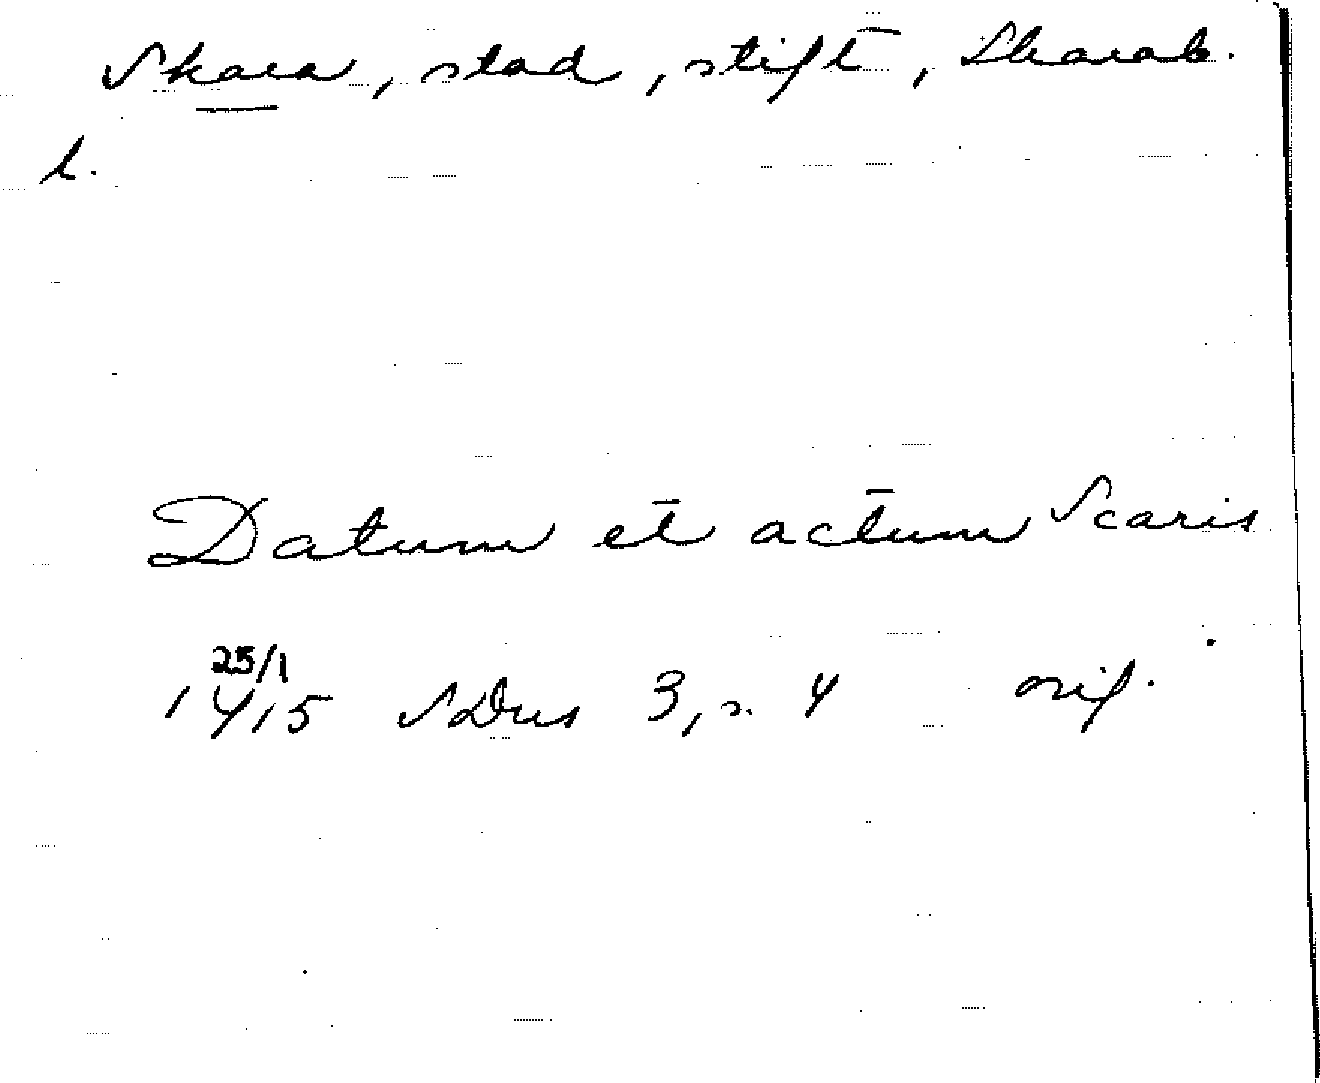 Skara, stad, stift, Skarab.
l.
Datum et actum Scaris
25/1
1415 SDns 3, s. 4 orig.